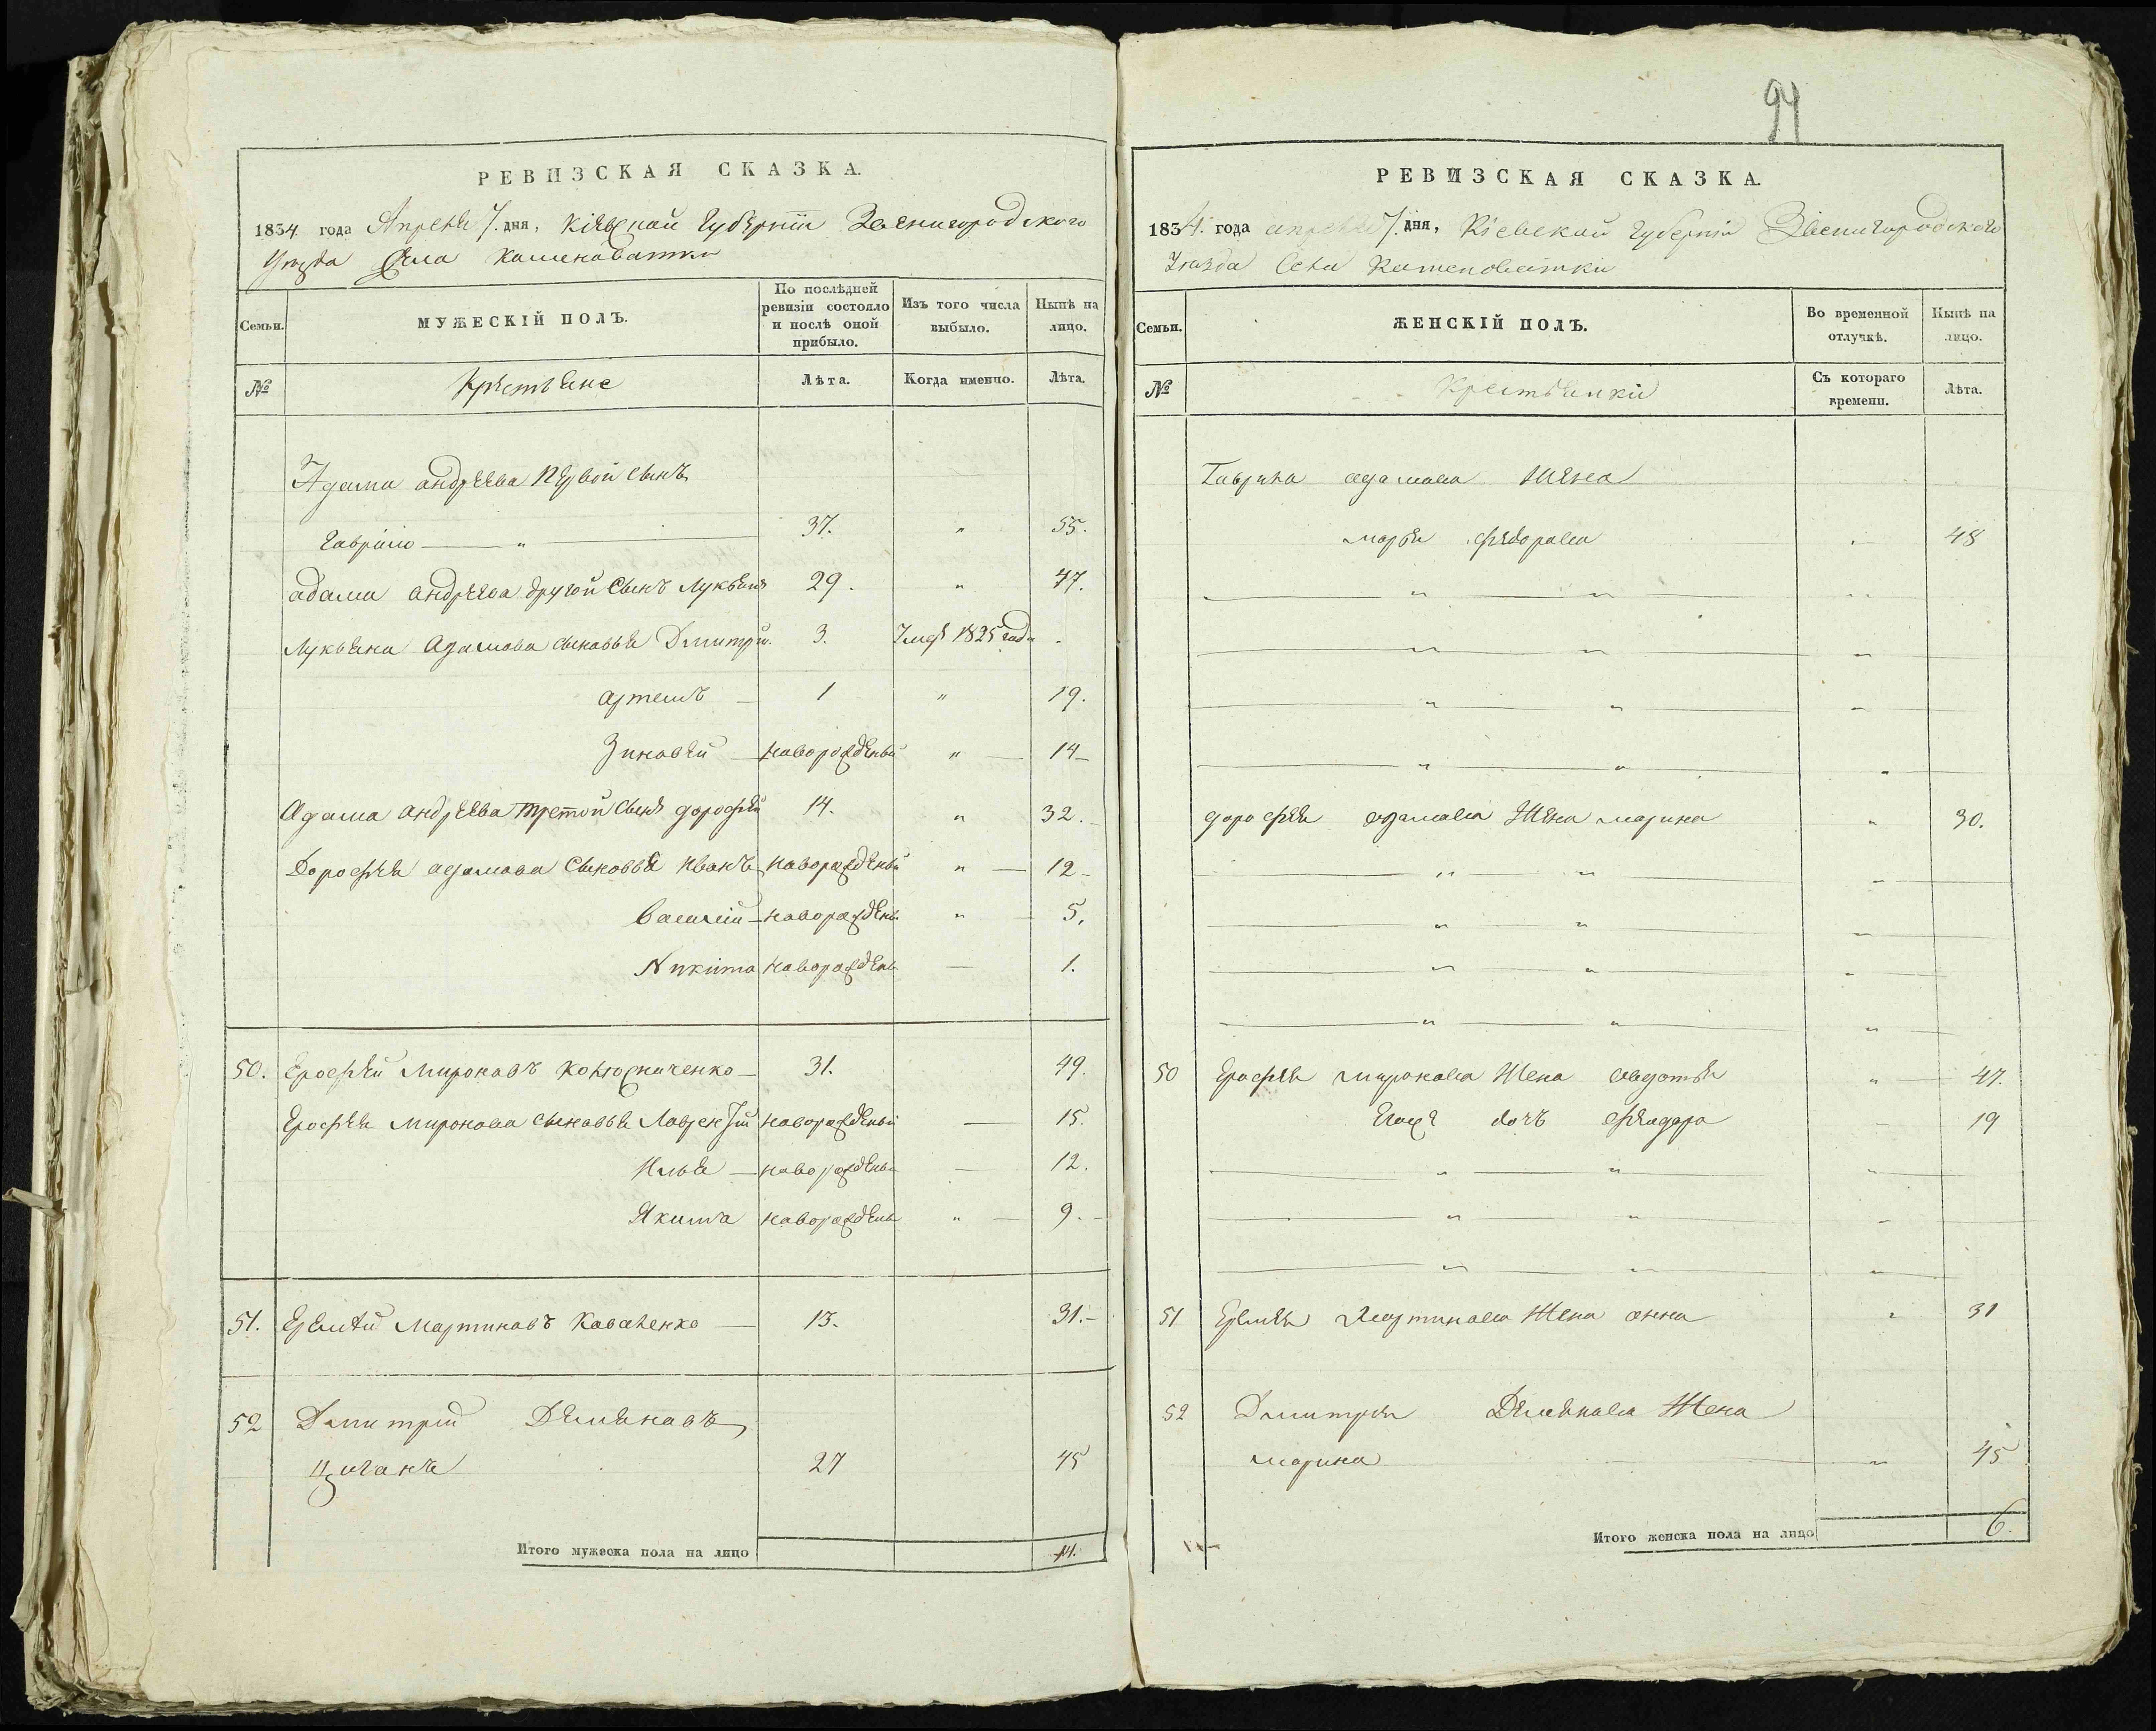 РЕВИЗСКАЯ СКАЗКА.
1834 года Апреля 7. дня, Кіевской Губерніи Звенигородского
Уезда Села Каменоватки
Семьи.
МУЖЕСКІЙ ПОЛЪ.
По послѣдней ревизіи состояло и послѣ оной прибыло.
Изъ того числа выбыло.
Нынѣ на лицо.
№
Крестьяне
Лѣта.
Когда именно.
Лѣта.
Адама андреева первой сынъ
Гаврило — " — 37. " 55.
адама андреева другой сынъ Лукьянъ 29. " 47.
Лукьяна Адамова сыновья Дмитрій 3. Умер 1825 года
артемъ — 1 " 19.
Зиновей — новорожденый " — 14
Адама андреева третой сынъ дорофей 14. " 32.
Дорофея адамова сыновья Иванъ новорожденый " — 12
Василий — новорожден " — 5.
Никита новорожден — 1.
50. Ерофей Миронавъ Колюсниченко — 31. 49.
Ерофея Миронова сыновья Лаврентий новорожденый — 15.
Илья — новорожденый — 12.
Якима новорожден " — 9.
51. Еремей Мартиновъ Коваленко — 13. 31.
52 Дмитрій Демяновъ
Циганъ 27 45
Итого мужеска пола на лицо 14.
94
РЕВИЗСКАЯ СКАЗКА.
1834. года апреля 7. дня, Кіевской Губерніи Звенигородского
Уезда Села Каменоватки
Семьи.
ЖЕНСКІЙ ПОЛЪ.
Во временной отлучкѣ.
Нынѣ на лицо.
№
Крестьянки
Съ котораго времени.
Лѣта.
Гаврила адамова жена
марья федорова 48
дорофея адамова жена марина " 30.
50 Ерофея миронова жена авдотья " 47.
Егоже дочь феадора 19
51 Еремея Мартинова жена анна " 31
52 Дмитрея Демянова жена
марина " 45
Итого женска пола на лицо 6.